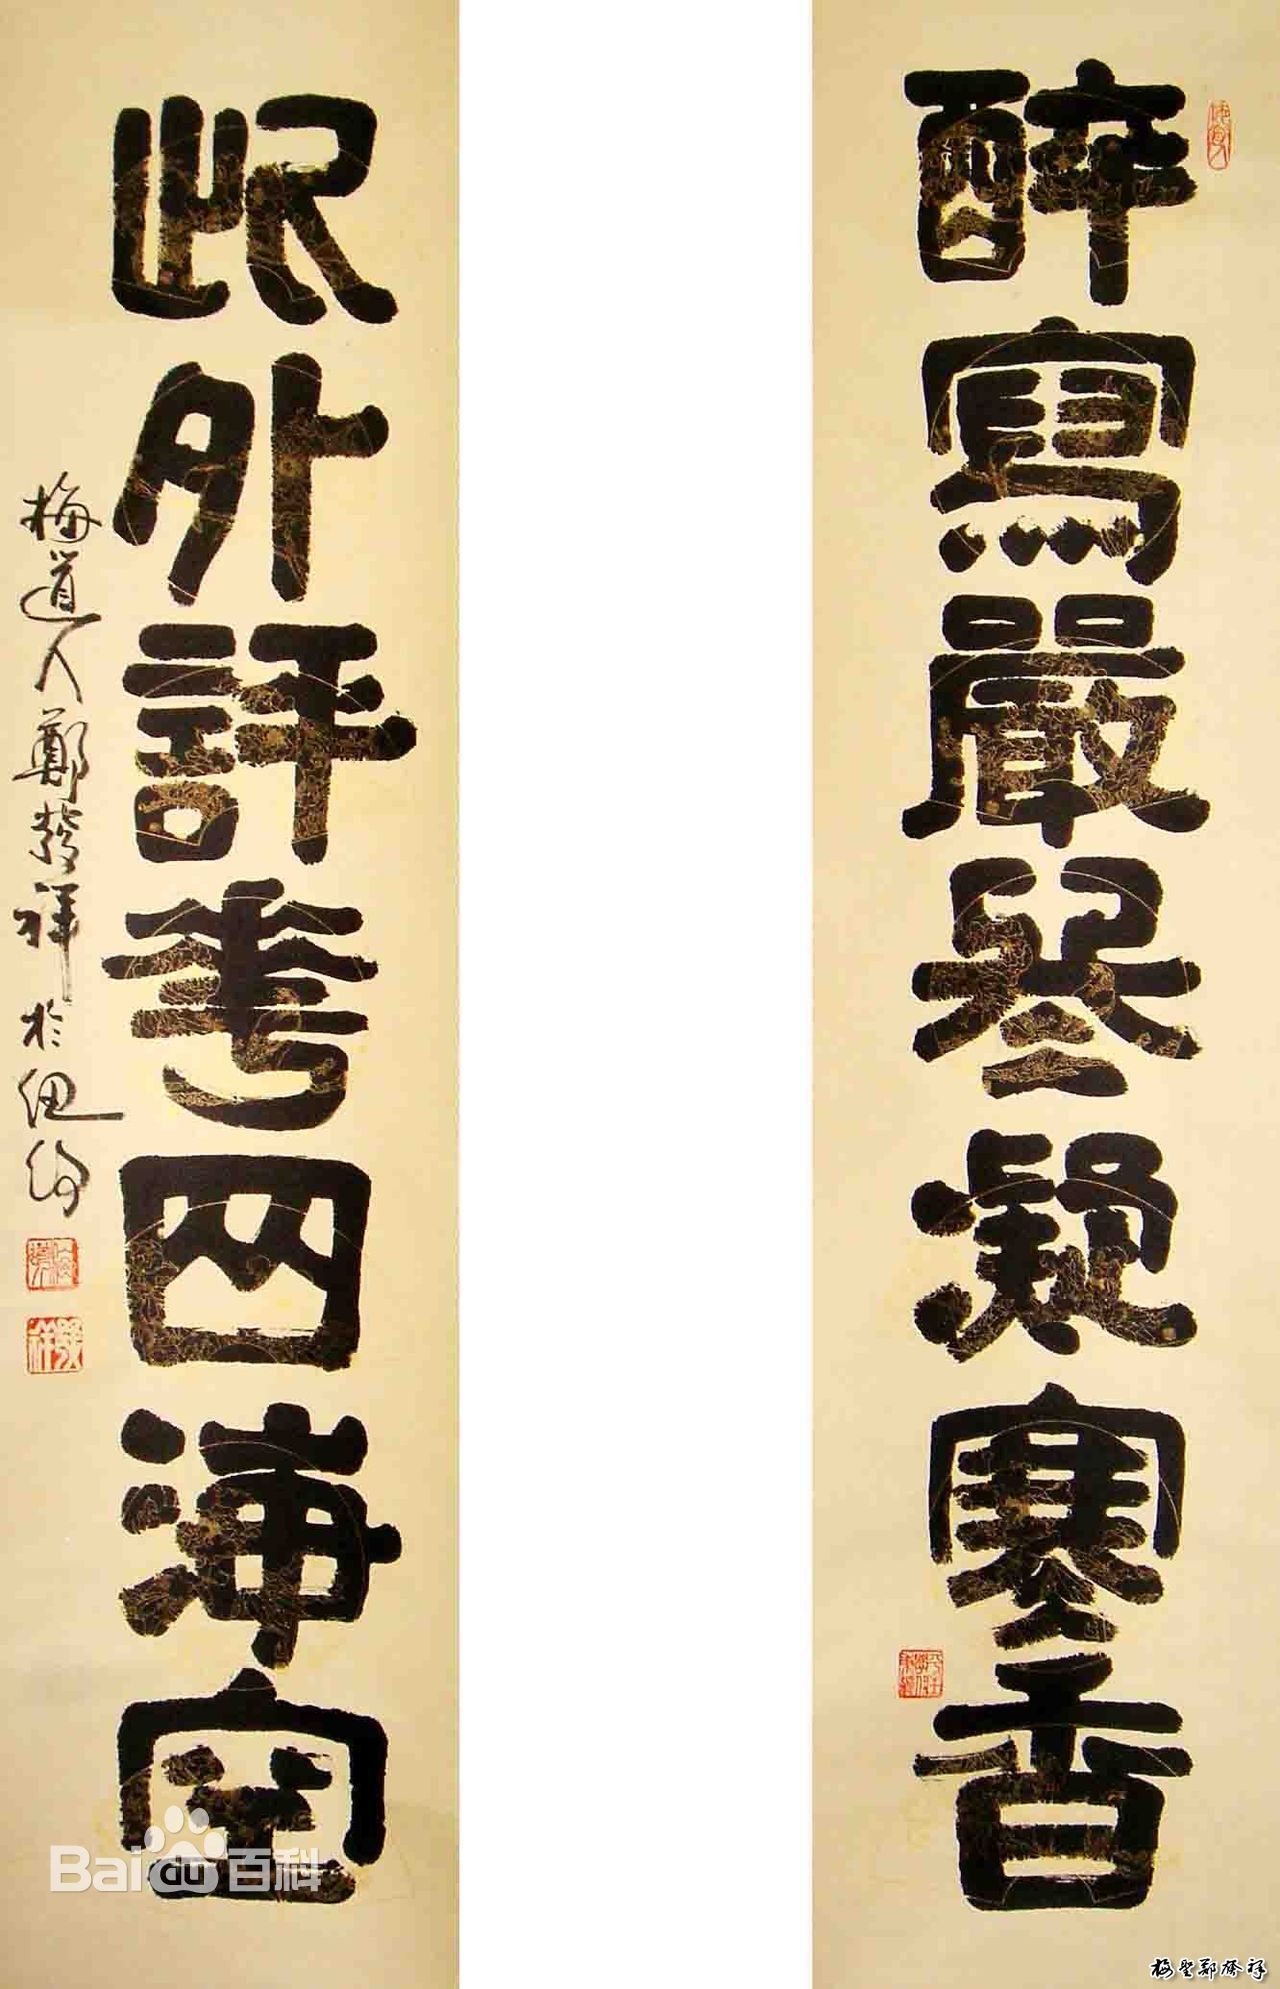 醉寫嚴冬凝寒香
此外評華四海空
梅道人鄭發祥於紐約
發祥
Baidu百科
梅聖鄭發祥